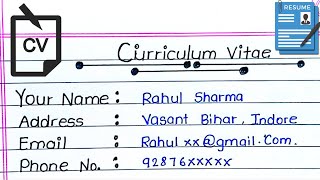 CV
RESUME
Curriculum Vitae
Your Name : Rahul Sharma
Address : Vasant Bihar, Indore
Email : Rahul xx@gmail.com.
Phone No. : 92876xxxxx